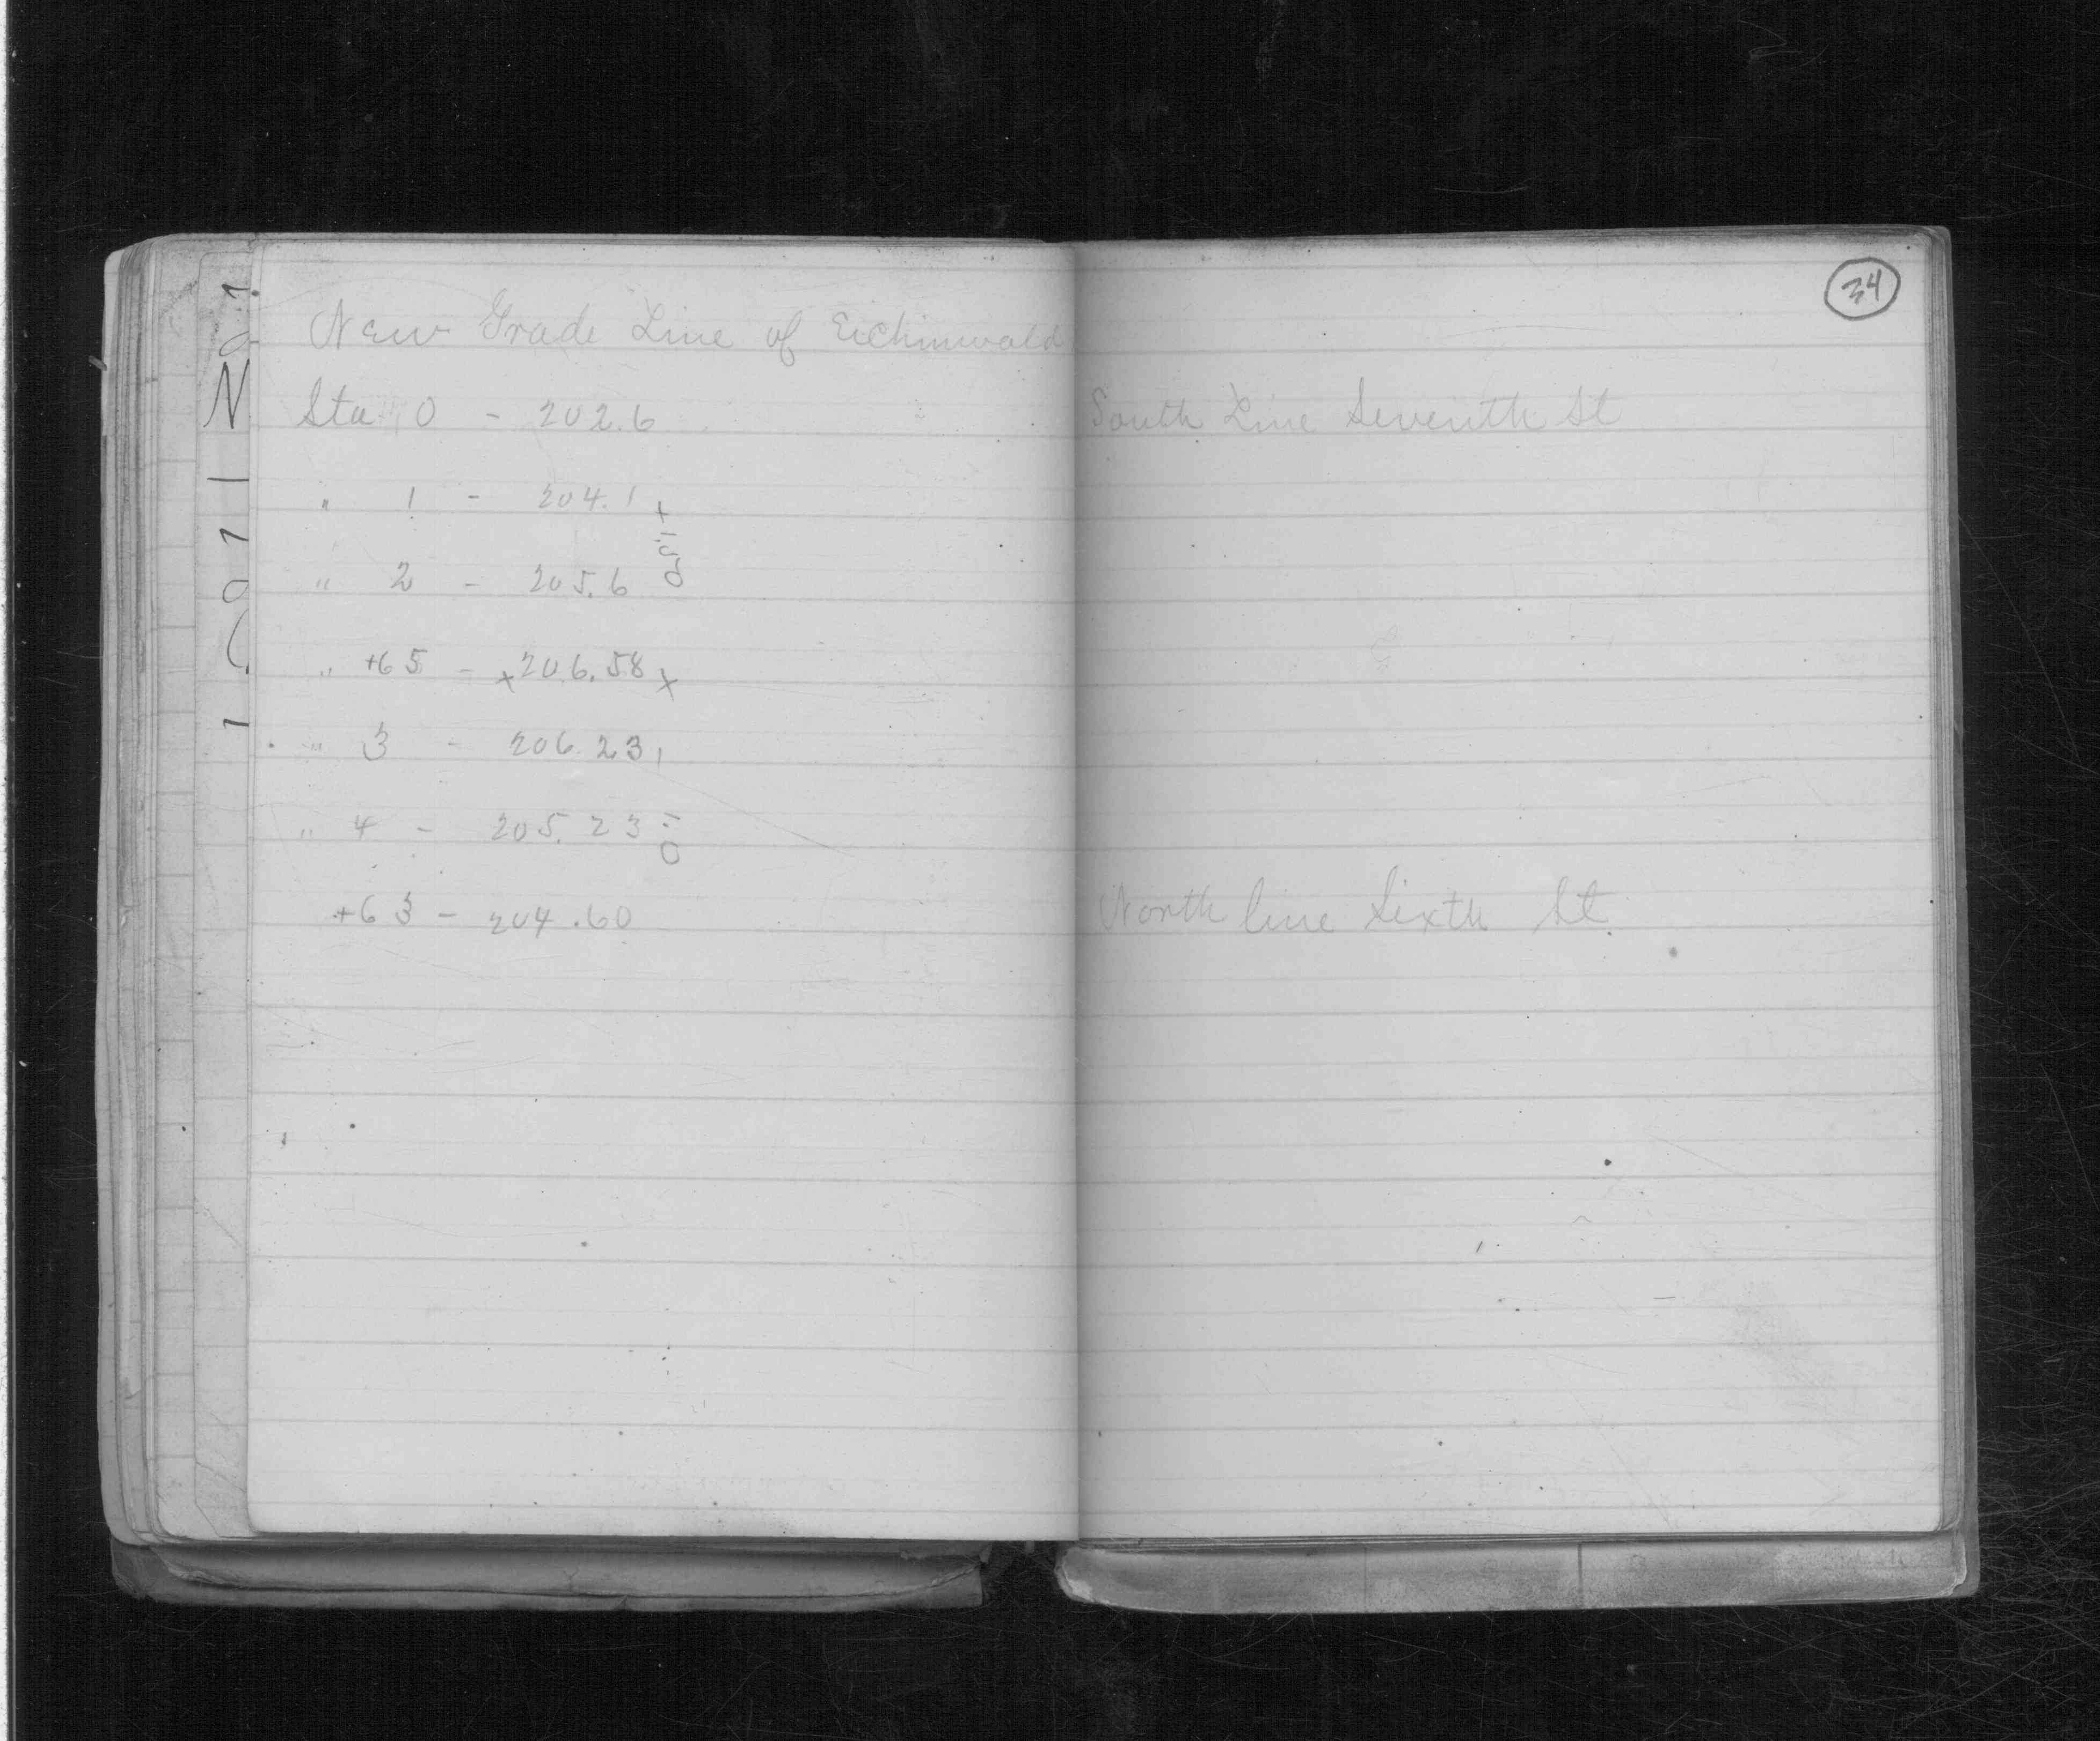 34
New Grade Line of Eichinwald
Sta 0 - 202.6 South Line Seventh St
" 1 - 204.1
+1.5
" 2 - 205.6
" +65 - x 206.58 x
" 3 - 206.23
" 4 - 205.23
-1.0
+63 - 204.60 North line Sixth St.